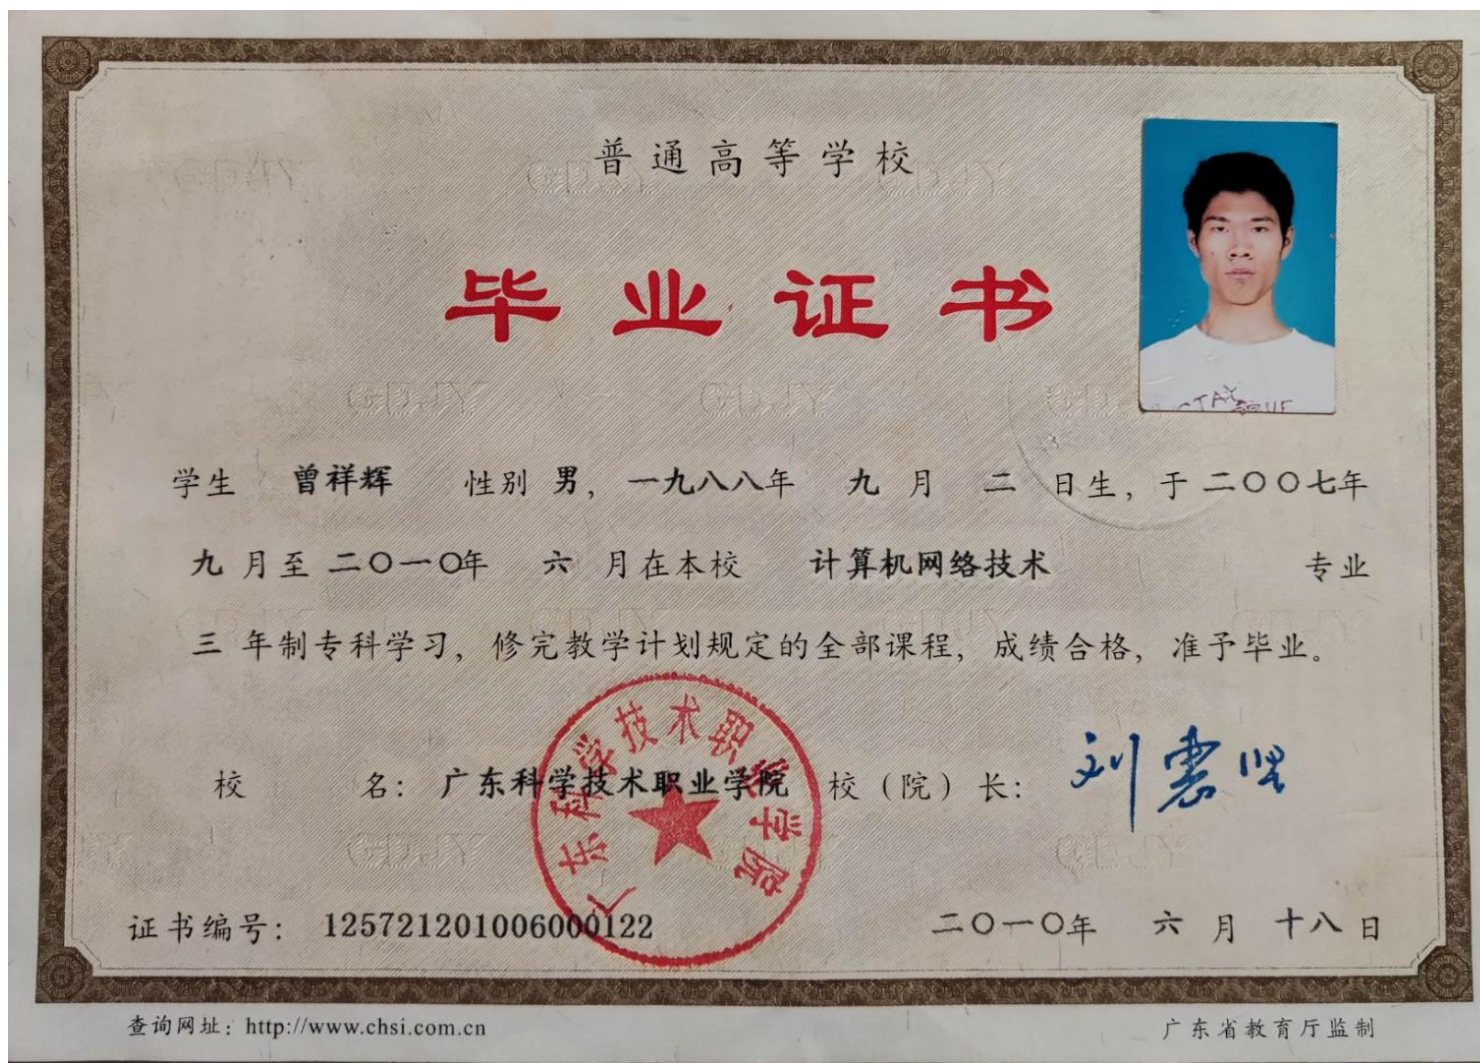 普通高等学校
毕业证书
学生 曾祥辉 性别 男，一九八八年 九 月 二 日生，于 二〇〇七年
九 月至 二〇一〇年 六 月在本校 计算机网络技术 专业
三 年制专科学习，修完教学计划规定的全部课程，成绩合格，准予毕业。
广东科学技术职业学院
校 名：广东科学技术职业学院 校（院）长：
证书编号：125721201006000122 二〇一〇年 六 月 十八 日
查询网址：http://www.chsi.com.cn 广东省教育厅监制